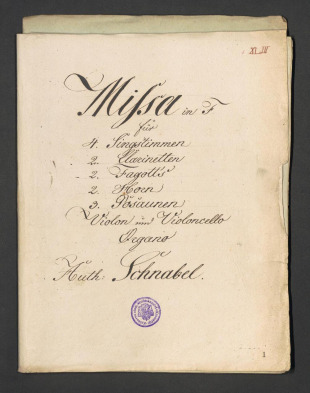 Missa in F
für
4. Singstimmen
2. Clarinetten
2. Fagott's
2. Horn
3. Posaunen
Violon und Violoncello
Organo
Auth. Schnabel.
1